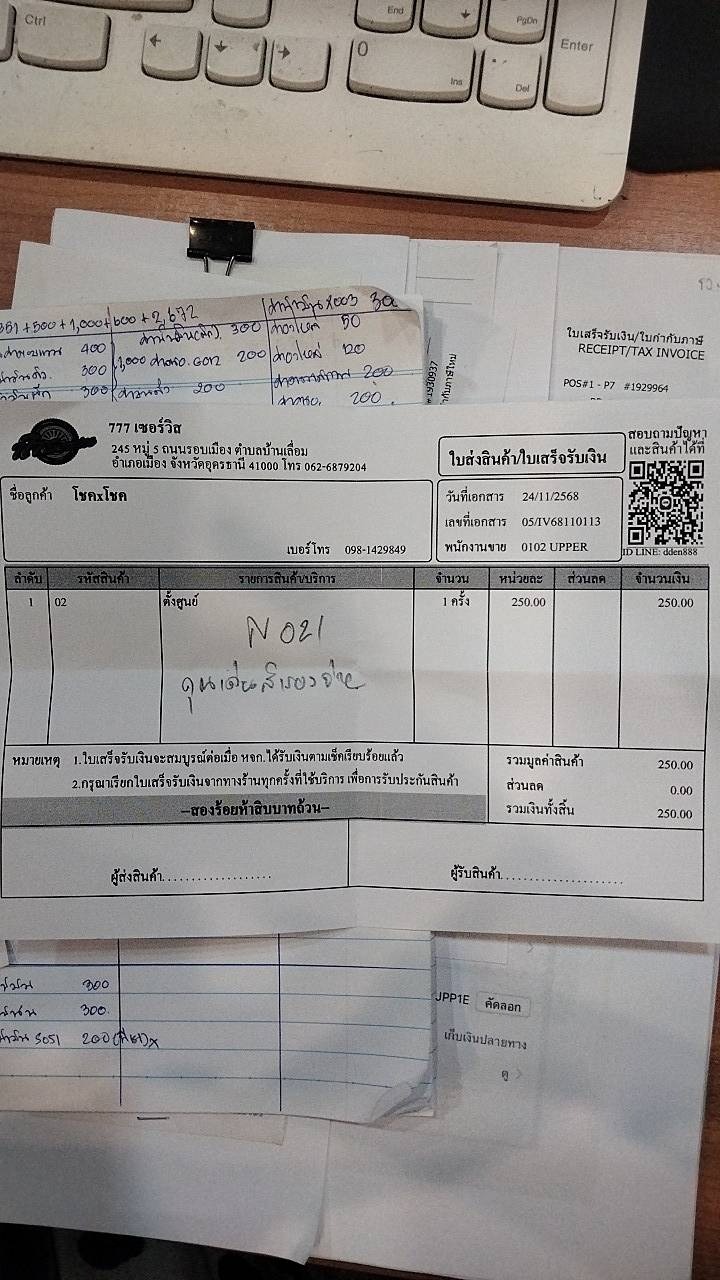 Ctrl
End
PgDn
Enter
0
Ins
Del
351+500+1,000+600+2,672
300
50
400
300
1,000
200
120
300
200
200
200
ใบเสร็จรับเงิน/ใบกำกับภาษี
RECEIPT/TAX INVOICE
POS#1 - P7 #1929964
777 เซอร์วิส
245 หมู่ 5 ถนนรอบเมือง ตำบลบ้านเลื่อม
อำเภอเมือง จังหวัดอุดรธานี 41000 โทร 062-6879204
ใบส่งสินค้า/ใบเสร็จรับเงิน
สอบถามปัญหา
และสินค้าได้ที่
ID LINE: dden888
ชื่อลูกค้า โชคxโชค
เบอร์โทร 098-1429849
วันที่เอกสาร 24/11/2568
เลขที่เอกสาร 05/IV68110113
พนักงานขาย 0102 UPPER
ลำดับ รหัสสินค้า รายการสินค้า/บริการ จำนวน หน่วยละ ส่วนลด จำนวนเงิน
1 02 ตั้งศูนย์ 1 ครั้ง 250.00 250.00
N 021
หมายเหตุ 1.ใบเสร็จรับเงินจะสมบูรณ์ต่อเมื่อ หจก.ได้รับเงินตามเช็คเรียบร้อยแล้ว
2.กรุณาเรียกใบเสร็จรับเงินจากทางร้านทุกครั้งที่ใช้บริการ เพื่อการรับประกันสินค้า
–สองร้อยห้าสิบบาทถ้วน–
รวมมูลค่าสินค้า 250.00
ส่วนลด 0.00
รวมเงินทั้งสิ้น 250.00
ผู้ส่งสินค้า...................
ผู้รับสินค้า.....................
300
300
5051 200
JPP1E คัดลอก
เก็บเงินปลายทาง
ดู